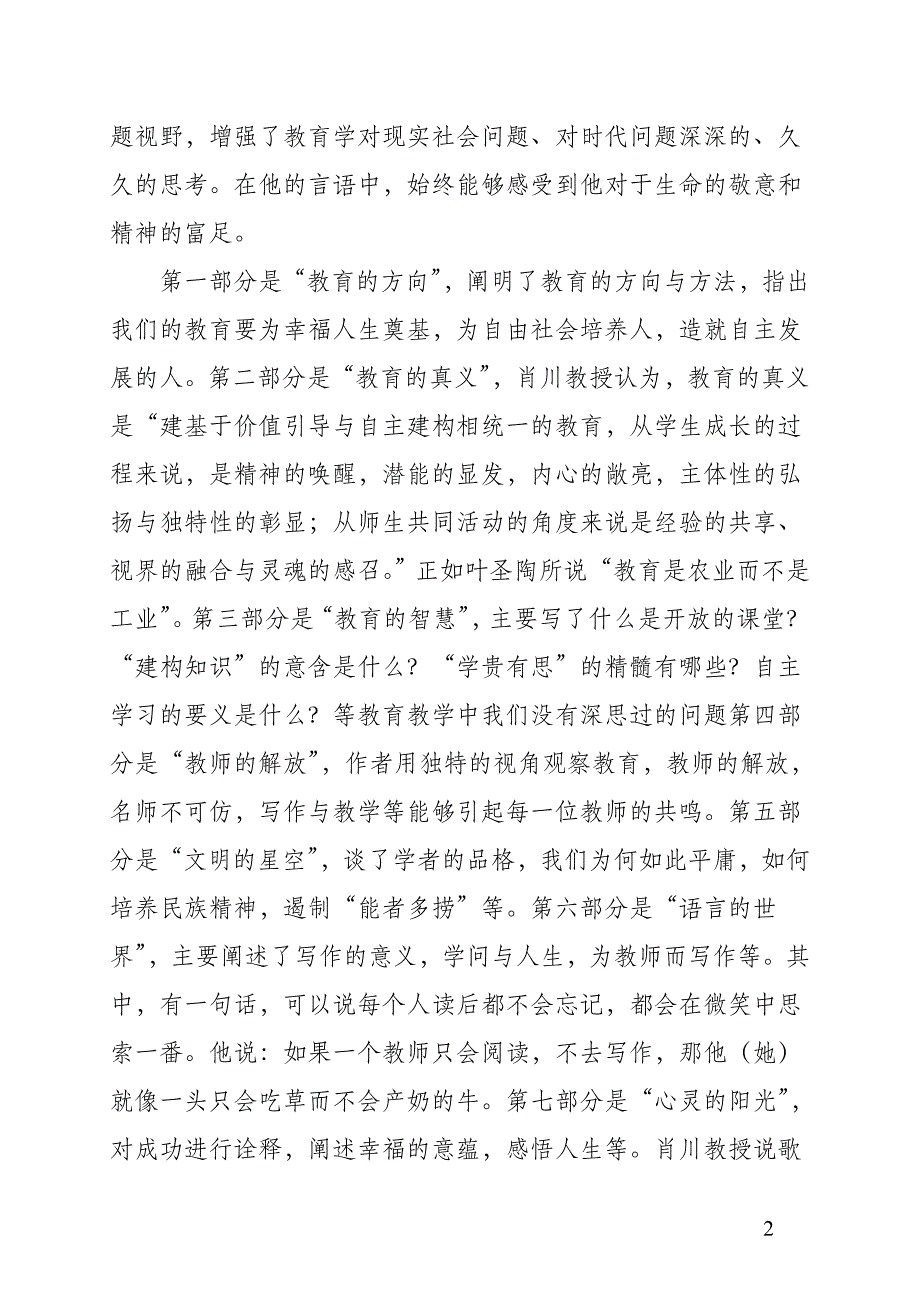 题视野，增强了教育学对现实社会问题、对时代问题深深的、久
久的思考。在他的言语中，始终能够感受到他对于生命的敬意和
精神的富足。
第一部分是“教育的方向”，阐明了教育的方向与方法，指出
我们的教育要为幸福人生奠基，为自由社会培养人，造就自主发
展的人。第二部分是“教育的真义”，肖川教授认为，教育的真义
是“建基于价值引导与自主建构相统一的教育，从学生成长的过
程来说，是精神的唤醒，潜能的显发，内心的敞亮，主体性的弘
扬与独特性的彰显；从师生共同活动的角度来说是经验的共享、
视界的融合与灵魂的感召。”正如叶圣陶所说“教育是农业而不是
工业”。第三部分是“教育的智慧”，主要写了什么是开放的课堂？
“建构知识”的意含是什么？“学贵有思”的精髓有哪些？自主
学习的要义是什么？等教育教学中我们没有深思过的问题第四部
分是“教师的解放”，作者用独特的视角观察教育，教师的解放，
名师不可仿，写作与教学等能够引起每一位教师的共鸣。第五部
分是“文明的星空”，谈了学者的品格，我们为何如此平庸，如何
培养民族精神，遏制“能者多捞”等。第六部分是“语言的世
界”，主要阐述了写作的意义，学问与人生，为教师而写作等。其
中，有一句话，可以说每个人读后都不会忘记，都会在微笑中思
索一番。他说：如果一个教师只会阅读，不去写作，那他（她）
就像一头只会吃草而不会产奶的牛。第七部分是“心灵的阳光”，
对成功进行诠释，阐述幸福的意蕴，感悟人生等。肖川教授说歌
2